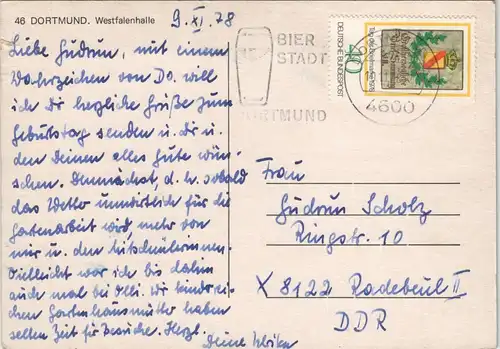 46 DORTMUND. Westfalenhalle
9. XI. 78
Liebe Gudrun, mit einem
Wahrzeichen von Do. will
ich dir herzliche Grüße zum
Geburtstag senden u. dir u.
den Deinen alles Gute wün-
schen. Demnächst, d. h. sobald
das Wetter unwirtlich für die
Gartenarbeit wird, mehr von
mir u. den Mitschülerinnen.
Vielleicht war ich bis dahin
auch mal bei Olli. Wir kinderrei-
chen Gartenhausmütter haben
selten Zeit für Besuche. Herzl.
Deine Ulrike
BIER
STADT
DORTMUND
4600
DEUTSCHE BUNDESPOST
40
Frau
Gudrun Scholz
Ringstr. 10
X 8122 Radebeul II
DDR